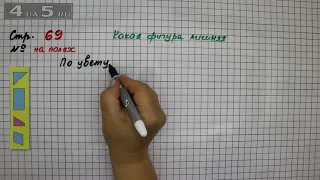 4 DA 5.RU
Стр. 69 Какая фигура лишняя
№ на полях
По цвету